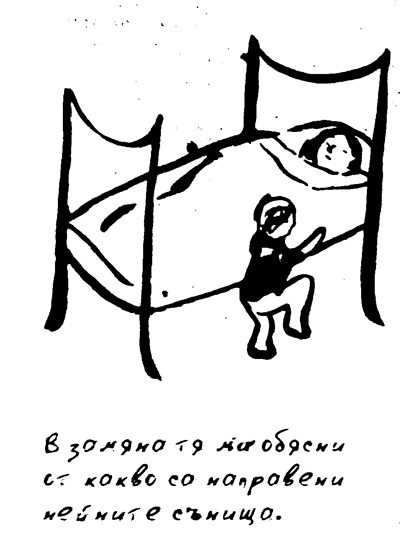 В замяна тя ми обясни
от какво са направени
нейните сънища.